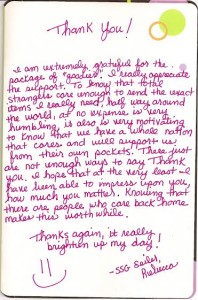 Thank You!
I am extremely grateful for the
package of "goodies". I really appreciate
the support. To know that total
strangers care enough to send the exact
items I really need, half way around
the world, at no expense is very
humbling. It also is very motivating
to know that we have a whole nation
that cares and will support us
from their own pockets. There just
are not enough ways to say Thank
you. I hope that at the very least I
have been able to impress upon you,
how much you matter. Knowing that
there are people who care back home
makes this worth while.
Thanks again, it really
brighten up my day!
-SSG Seiler,